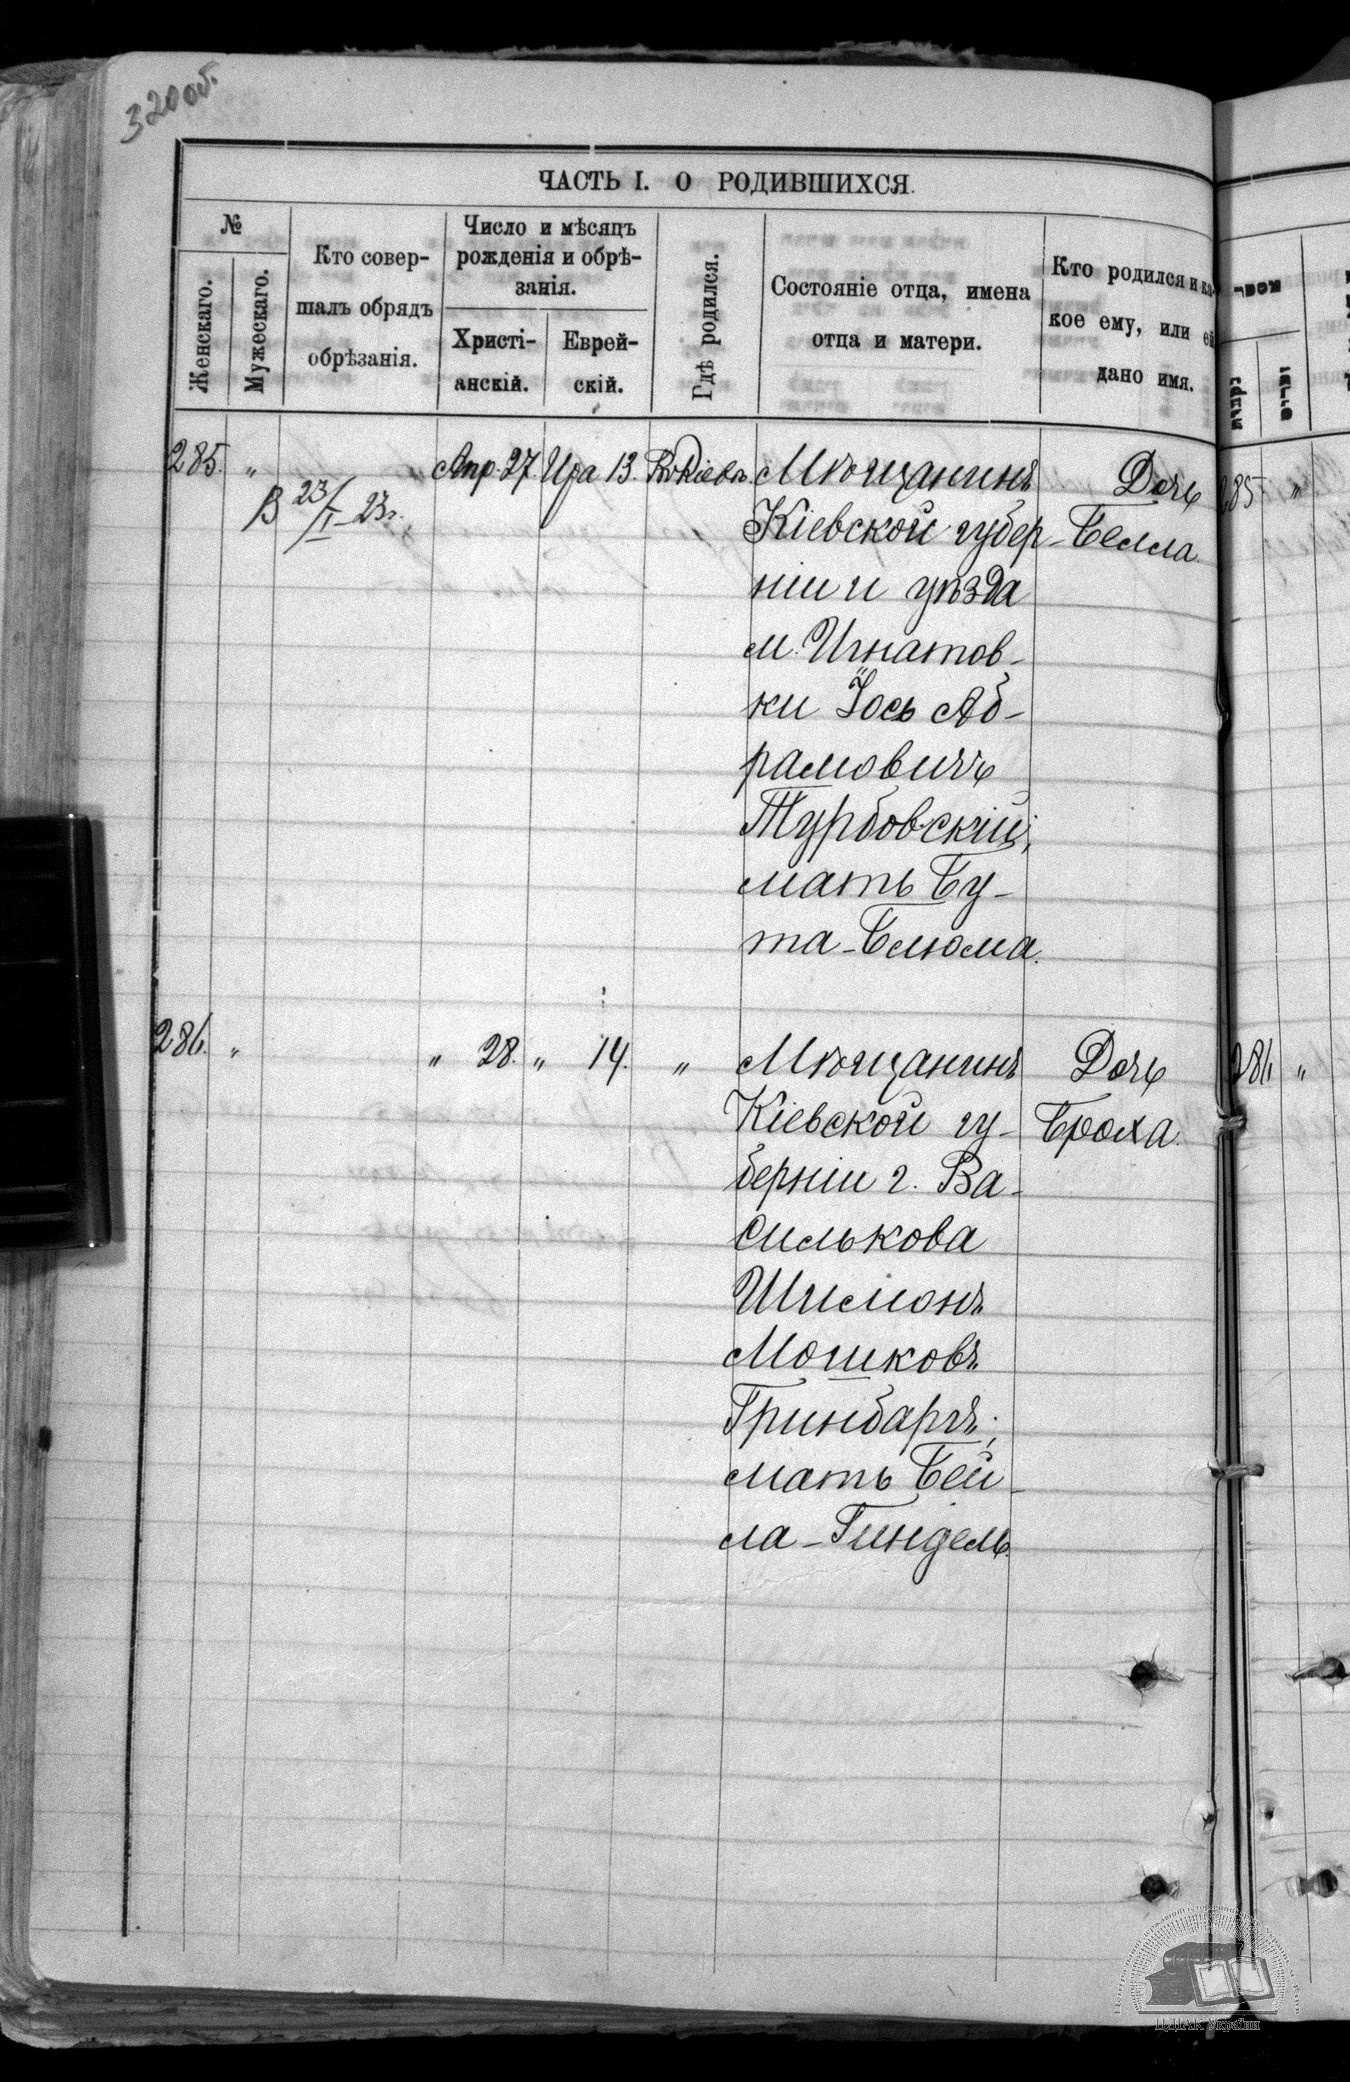 320об.
ЧАСТЬ I. О РОДИВШИХСЯ.
№
Женскаго.
Мужескаго.
Кто совер-
шалъ обрядъ
обрѣзанія.
Число и мѣсяцъ
рожденія и обрѣ-
занія.
Христі-
анскій.
Еврей-
скій.
Гдѣ родился.
Состояніе отца, имена
отца и матери.
Кто родился и ка-
кое ему, или ей
дано имя.
285. „ Апр. 27. Ира 13. Въ Кіевѣ. Мѣщанинъ Дочь
В 23/I 23г. Кіевской губер- Белла.
ніи и уѣзда
м. Игнатов-
ки Іось Аб-
рамовичъ
Турбовскій;
мать Бу-
та-Блюма.
286. „ „ 28. „ 14. „ Мѣщанинъ Дочь
Кіевской гу- Броха.
берніи г. Ва-
силькова
Шимонъ
Мошковъ
Гринбаргъ;
мать Бей-
ла-Гиндель.
285 „
286 „
ЦДІАК України